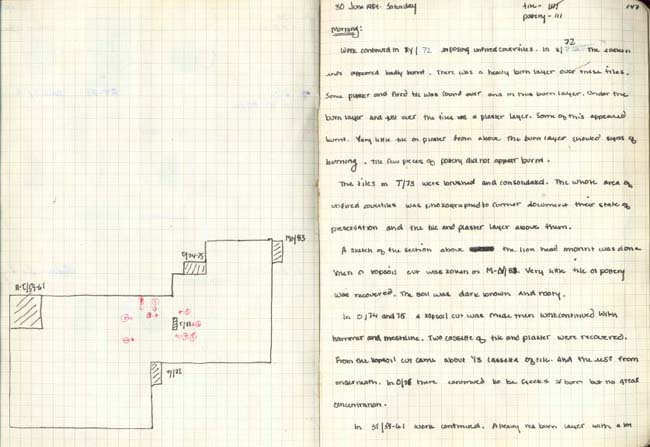 M-N/83
O/74-75
R-T/59-61
T/73
S/72
30 June 1984. Saturday
tile - 
pottery - 111
147
Morning:
Work continued in S/72 exposing unfired covertiles. In 
72
The eastern
ends appeared badly burnt. There was a heavy burn layer over these tiles.
Some plaster and fired tile was found over and in this burn layer. Under the
burn layer and just over the tiles was a plaster layer. Some of this appeared
burnt. Very little tile or plaster from above the burn layer showed signs of
burning. The few pieces of pottery did not appear burnt.
The tiles in T/73 were brushed and consolidated. The whole area of
unfired covertiles was photographed to further document their state of
preservation and the tile and plaster layer above them.
A sketch of the section above the lion head was done
when a topsoil cut was taken in M-N/83. Very little tile or pottery
was recovered. The soil was dark brown and rooty.
In O/74 and 75 a topsoil cut was made then work continued with
hammer and Two cassette of tile and plaster were recovered.
From the topsoil cut came about 1/3 cassetta of tile. And the rest from
underneath. In O/75 there continued to be flecks of burn but no great
concentration.
In 59-61 work continued. A heavy tile burn layer with a lot